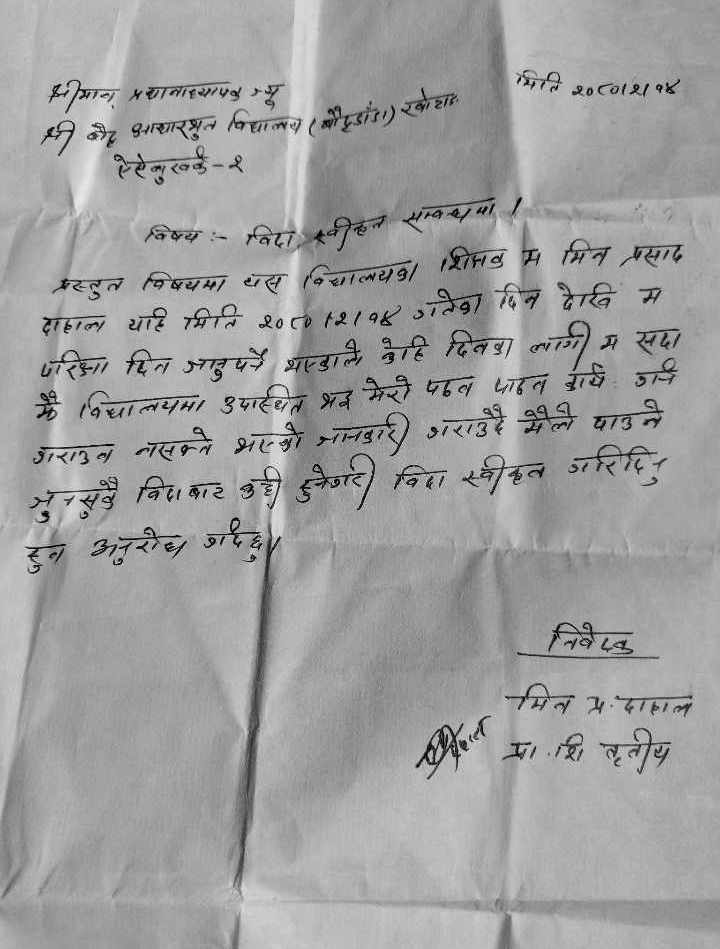 श्रीमान् प्रधानाध्यापक ज्यू
मिति २०८०।२।१४
श्री बौद्ध आधारभुत विद्यालय (बौद्धडाँडा)
ऐसेलुखर्क - २
विषय :- विदा स्वीकृत सम्बन्धमा ।
प्रस्तुत विषयमा यस विद्यालयका शिक्षक म मिन प्रसाद
दाहाल यहि मिति २०८०।२।१४ गतेका दिन देखि म
परिक्षा दिन जानुपर्ने भएकाले केहि दिनका लागी म सदा
झै विद्यालयमा उपस्थित भइ मेरो पठन पाठन कार्य गर्न
गराउन नसक्ने भएको जानकारी गराउदै मैले पाउने
जुनसुकै विदाबाट कट्टी हुनेगरी विदा स्वीकृत गरिदिनु
हुन अनुरोध गर्दछु।
निवेदक
मिन प्र. दाहाल
प्रा. शि तृतीय